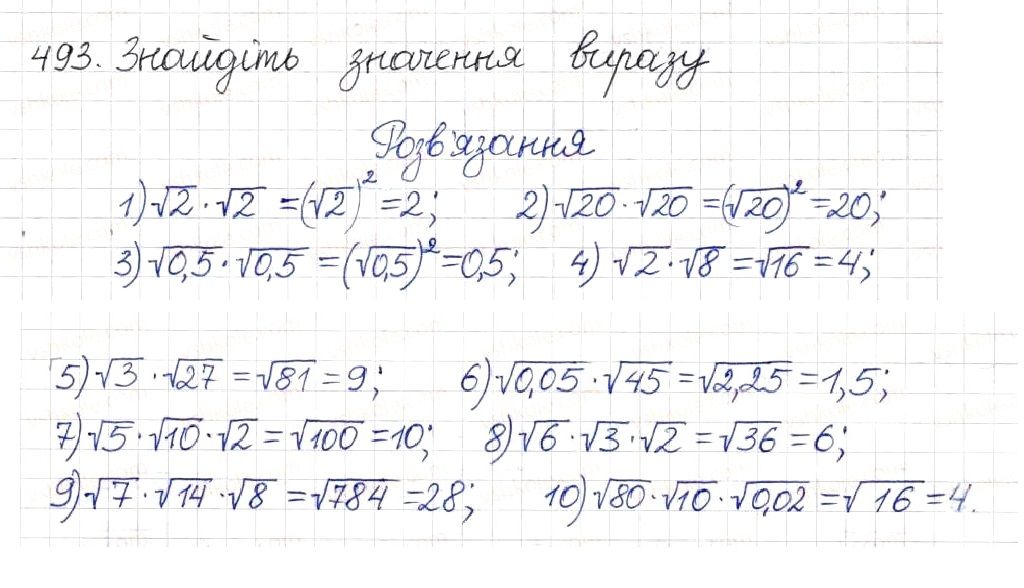 493. Знайдіть значення виразу
Розв'язання
1) √2 · √2 = (√2)² = 2; 2) √20 · √20 = (√20)² = 20;
3) √0,5 · √0,5 = (√0,5)² = 0,5; 4) √2 · √8 = √16 = 4;
5) √3 · √27 = √81 = 9; 6) √0,05 · √45 = √2,25 = 1,5;
7) √5 · √10 · √2 = √100 = 10; 8) √6 · √3 · √2 = √36 = 6;
9) √7 · √14 · √8 = √784 = 28; 10) √80 · √10 · √0,02 = √16 = 4.